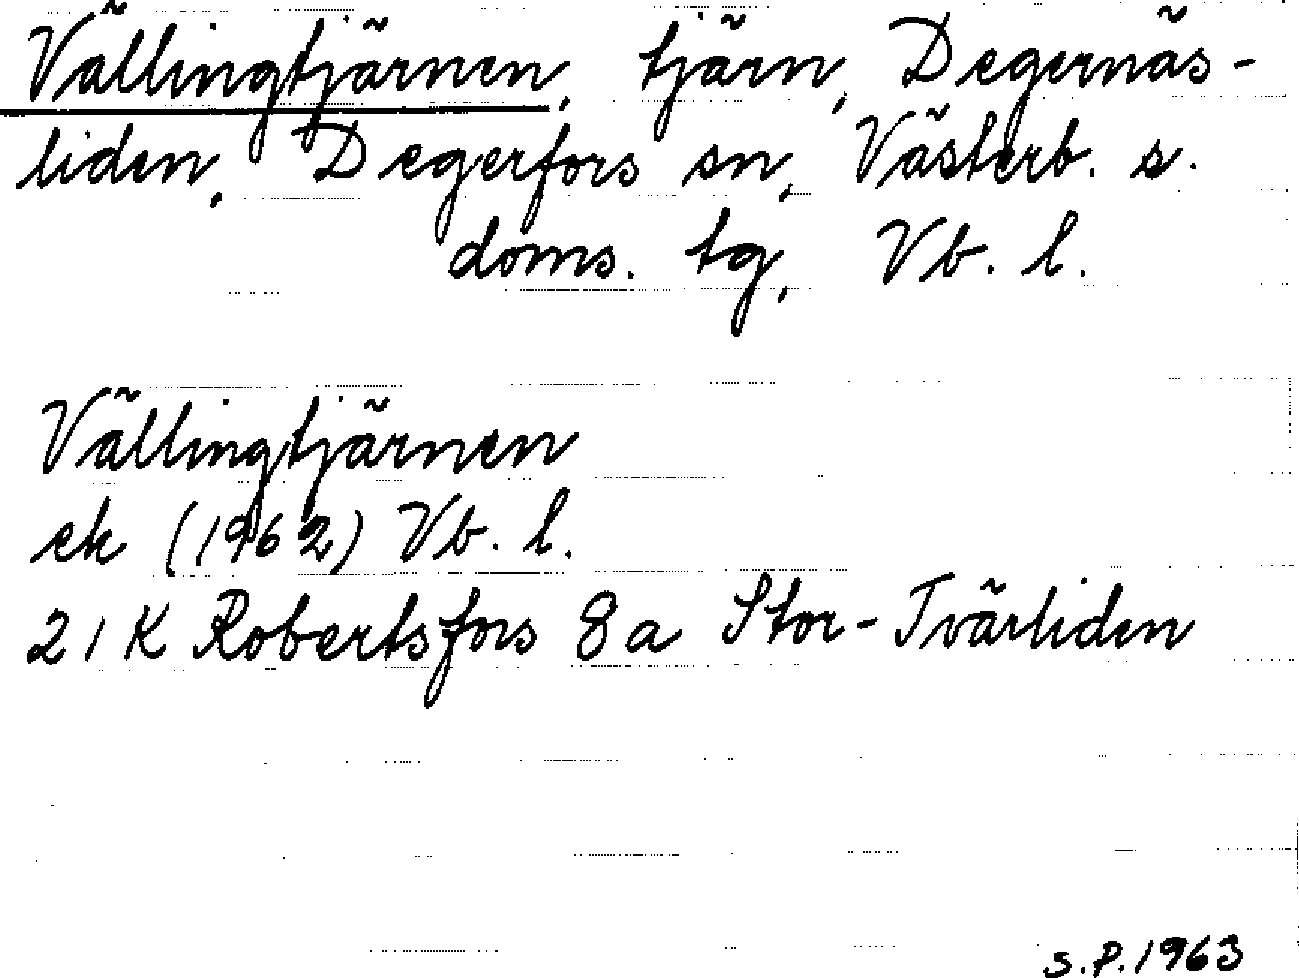 Vällingtjärnen, tjärn, Degernäs-
liden, Degerfors sn, Västerb. s.
doms. tg, Vb. l.
Vällingtjärnen
ek (1962) Vb. l.
21 K Robertsfors 8a Stor-Tvärliden
S.P. 1963